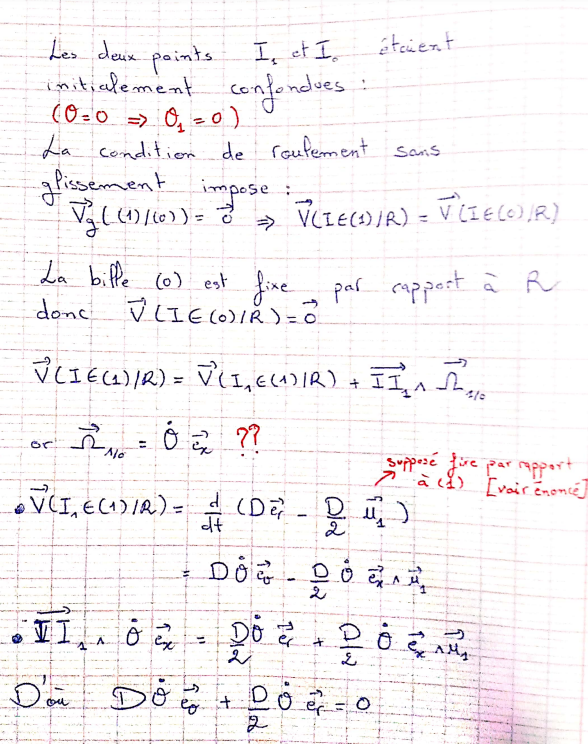 Les deux points I₁ et I₀ étaient
initialement confondues :
(θ=0 ⇒ θ₁=0)
La condition de roulement sans
glissement impose :
V⃗g((1)/(0)) = 0⃗ ⇒ V⃗(I∈(1)/R) = V⃗(I∈(0)/R)
La bille (0) est fixe par rapport à R
donc V⃗(I∈(0)/R) = 0⃗
V⃗(I∈(1)/R) = V⃗(I₁∈(1)/R) + II₁⃗ ∧ Ω⃗₁/₀
or Ω⃗₁/₀ = θ̇ e⃗ₓ ??
supposé fixe par rapport
à (1) [voir énoncé]
• V⃗(I₁∈(1)/R) = d/dt (D e⃗r − D/2 u⃗₁)
= D θ̇ e⃗θ − D/2 θ̇ e⃗ₓ ∧ u⃗₁
• II₁⃗ ∧ θ̇ e⃗ₓ = D/2 θ̇ e⃗r + D/2 θ̇ e⃗ₓ ∧ u⃗₁
D'où D θ̇ e⃗θ + D/2 θ̇ e⃗r = 0